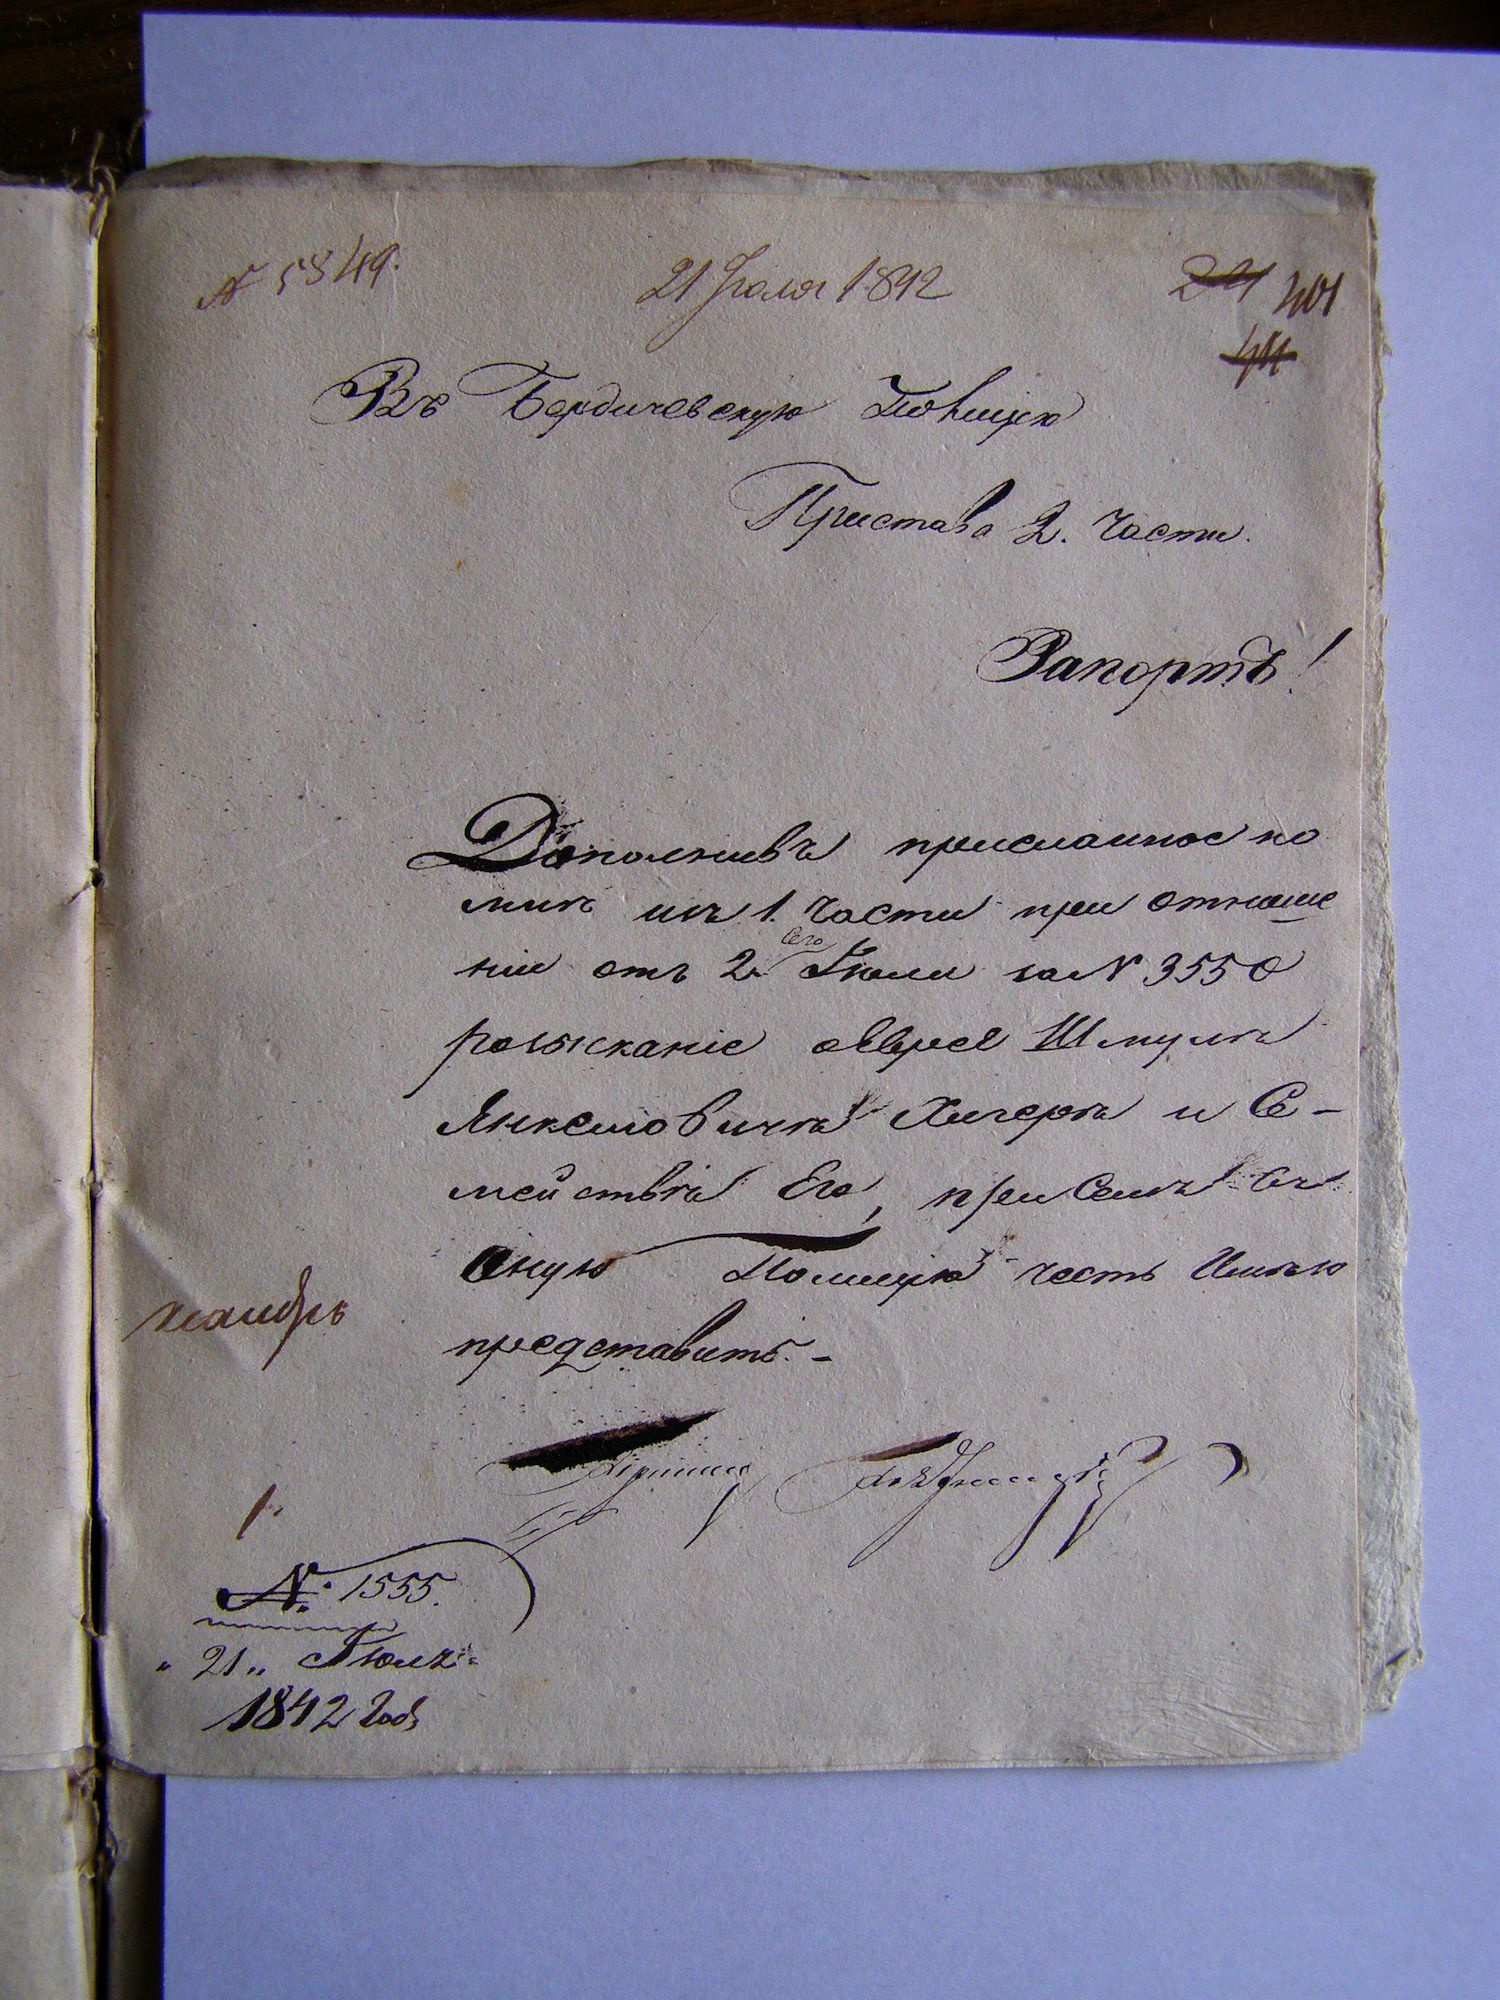 № 5849.
21 Июля 1842
24 401
44
Въ Бердичевскую Полицію
Пристава 2. Части.
Рапортъ!
Дополнивъ присланное ко
мнѣ изъ 1. Части при отноше
ніи отъ 2 сего Іюля за № 3550
розысканіе о евреѣ Шмулѣ
Янкеліовичѣ Хигерѣ и Се-
мействѣ Его, при семъ въ
оную Полицію честь Имѣю
представить. -
№. 1555.
" 21 " Іюля
1842 года